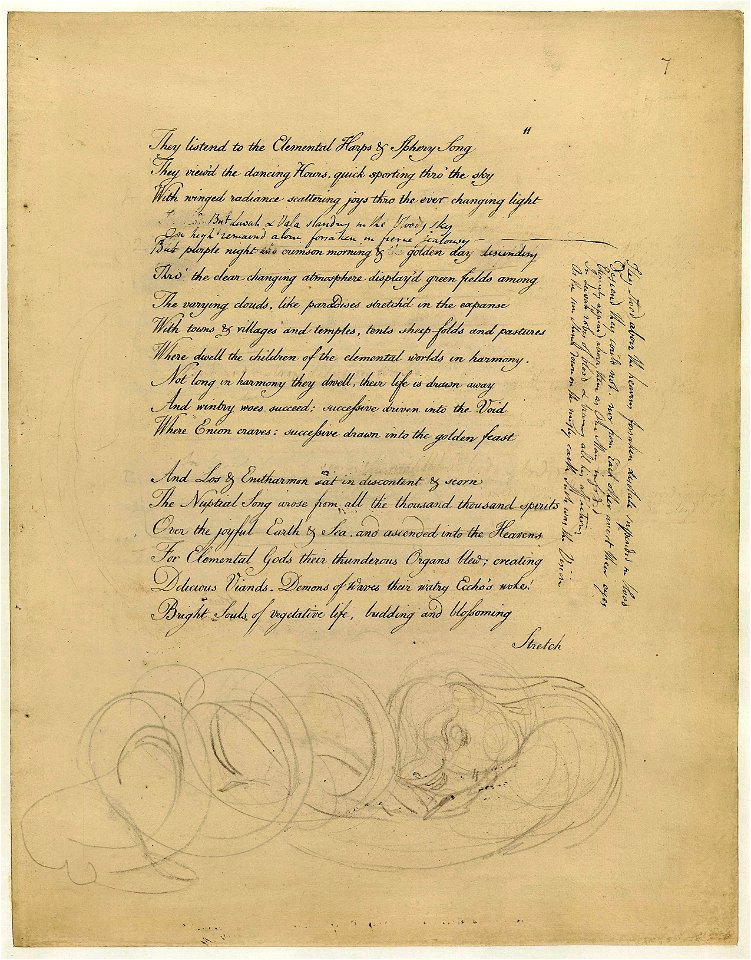 7
"
They listend to the Elemental Harps & Sphery Song
They view'd the dancing Hours, quick sporting thro' the sky
With winged radiance scattering joys thro the ever changing light
But Luvah & Vala standing in the bloody sky
On high remaind alone forsaken in fierce jealousy
They stood above the heavens forsaken desolate suspended in blood
Descend they could not. nor from Each other avert their eyes
Eternity appeard above them as One Man infolded
In Luvahs robes of blood & bearing all his afflictions
As the sun shines down on the misty earth Such was the Vision
But purple night and crimson morning & golden day descending
Thro' the clear changing atmosphere display'd green fields among
The varying clouds, like paradises stretch'd in the expanse
With towns & villages and temples, tents sheep-folds and pastures
Where dwell the children of the elemental worlds in harmony.
Not long in harmony they dwell, their life is drawn away
And wintry woes succeed; successive driven into the Void
Where Enion craves: successive drawn into the golden feast
And Los & Enitharmon sat in discontent & scorn
The Nuptial Song arose from all the thousand thousand spirits
Over the joyful Earth & Sea, and ascended into the Heavens
For Elemental Gods their thunderous Organs blew; creating
Delicious Viands. Demons of Waves their watry Eccho's woke!
Bright Souls of vegetative life, budding and blossoming
Stretch